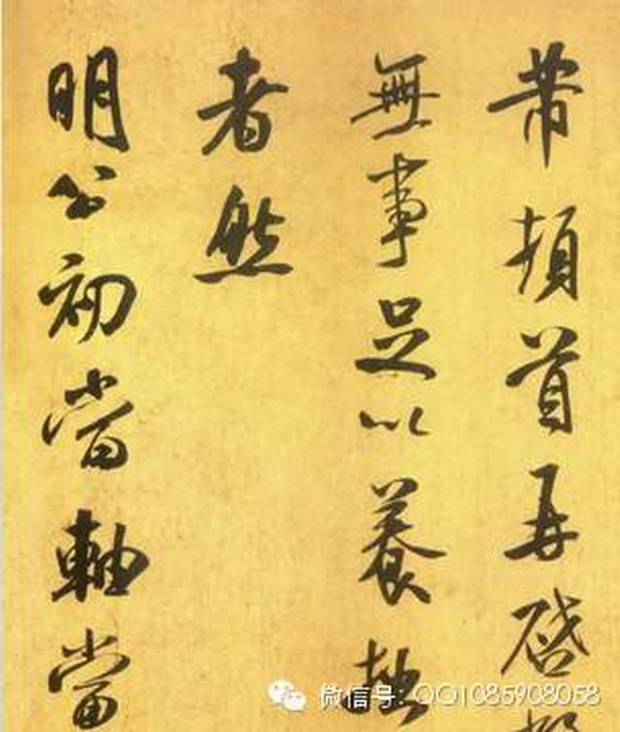 芾頓首再启
無事足以養拙
者然
明公初當軸當
微信号: QQ1085908058